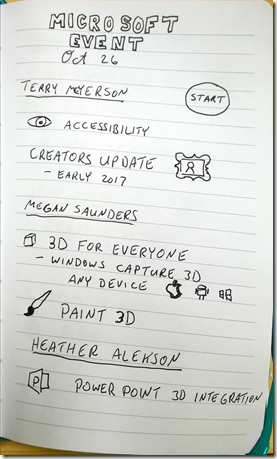 MICROSOFT
EVENT
Oct 26
TERRY MYERSON
START
ACCESSIBILITY
CREATORS UPDATE
- EARLY 2017
MEGAN SAUNDERS
3D FOR EVERYONE
- WINDOWS CAPTURE 3D
ANY DEVICE
PAINT 3D
HEATHER ALEKSON
P
POWER POINT 3D INTEGRATION